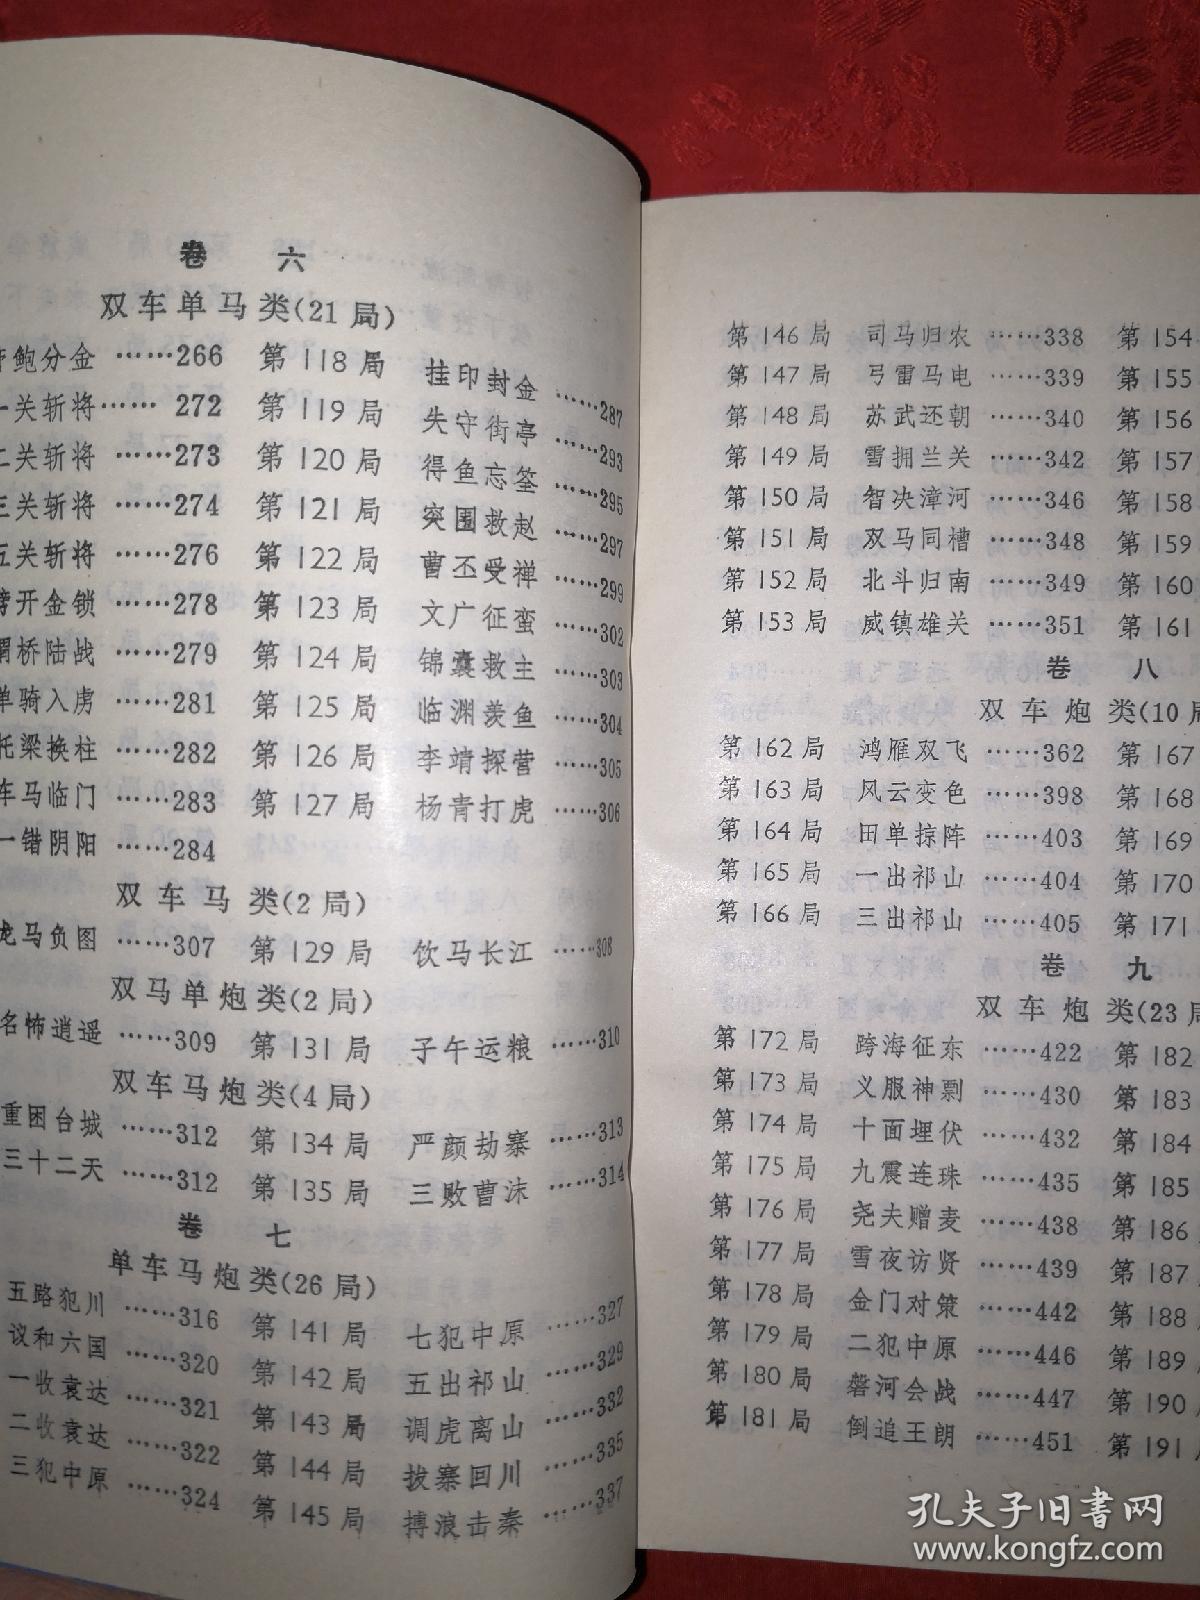 卷 六
双车单马类(21局)
鲍分金 ……266 第118局 挂印封金 ……287
一关斩将…… 272 第119局 失守街亭 ……293
二关斩将 ……273 第120局 得鱼忘筌 ……295
三关斩将 ……274 第121局 突围救赵 ……297
五关斩将 ……276 第122局 曹丕受禅 ……299
开金锁 ……278 第123局 文广征蛮 ……302
桥陆战 ……279 第124局 锦囊救主 ……303
单骑入虏 ……281 第125局 临渊羡鱼 ……304
托梁换柱 ……282 第126局 李靖探营 ……305
车马临门 ……283 第127局 杨青打虎 ……306
一错阴阳 ……284
双车马类(2局)
龙马负图 ……307 第129局 饮马长江 ……308
双马单炮类(2局)
名怖逍遥 ……309 第131局 子午运粮 ……310
双车马炮类(4局)
重困台城 ……312 第134局 严颜劫寨 ……313
三十二天 ……312 第135局 三败曹沫 ……314
卷 七
单车马炮类(26局)
五路犯川 ……316 第141局 七犯中原 ……327
议和六国 ……320 第142局 五出祁山 ……329
一收袁达 ……321 第143局 调虎离山 ……332
二收袁达 ……322 第144局 拔寨回川 ……335
三犯中原 ……324 第145局 搏浪击秦 ……337
第146局 司马归农 ……338 第154
第147局 弓雷马电 ……339 第155
第148局 苏武还朝 ……340 第156
第149局 雪拥兰关 ……342 第157
第150局 智决漳河 ……346 第158
第151局 双马同槽 ……348 第159
第152局 北斗归南 ……349 第160
第153局 威镇雄关 ……351 第161
卷 八
双车炮类(10局
第162局 鸿雁双飞 ……362 第167
第163局 风云变色 ……398 第168
第164局 田单掠阵 ……403 第169
第165局 一出祁山 ……404 第170
第166局 三出祁山 ……405 第171
卷 九
双车炮类(23局
第172局 跨海征东 ……422 第182
第173局 义服神剽 ……430 第183
第174局 十面埋伏 ……432 第184
第175局 九震连珠 ……435 第185
第176局 尧夫赠麦 ……438 第186
第177局 雪夜访贤 ……439 第187
第178局 金门对策 ……442 第188
第179局 二犯中原 ……446 第189
第180局 磐河会战 ……447 第190
第181局 倒追王朗 ……451 第191
孔夫子旧书网
www.kongfz.com